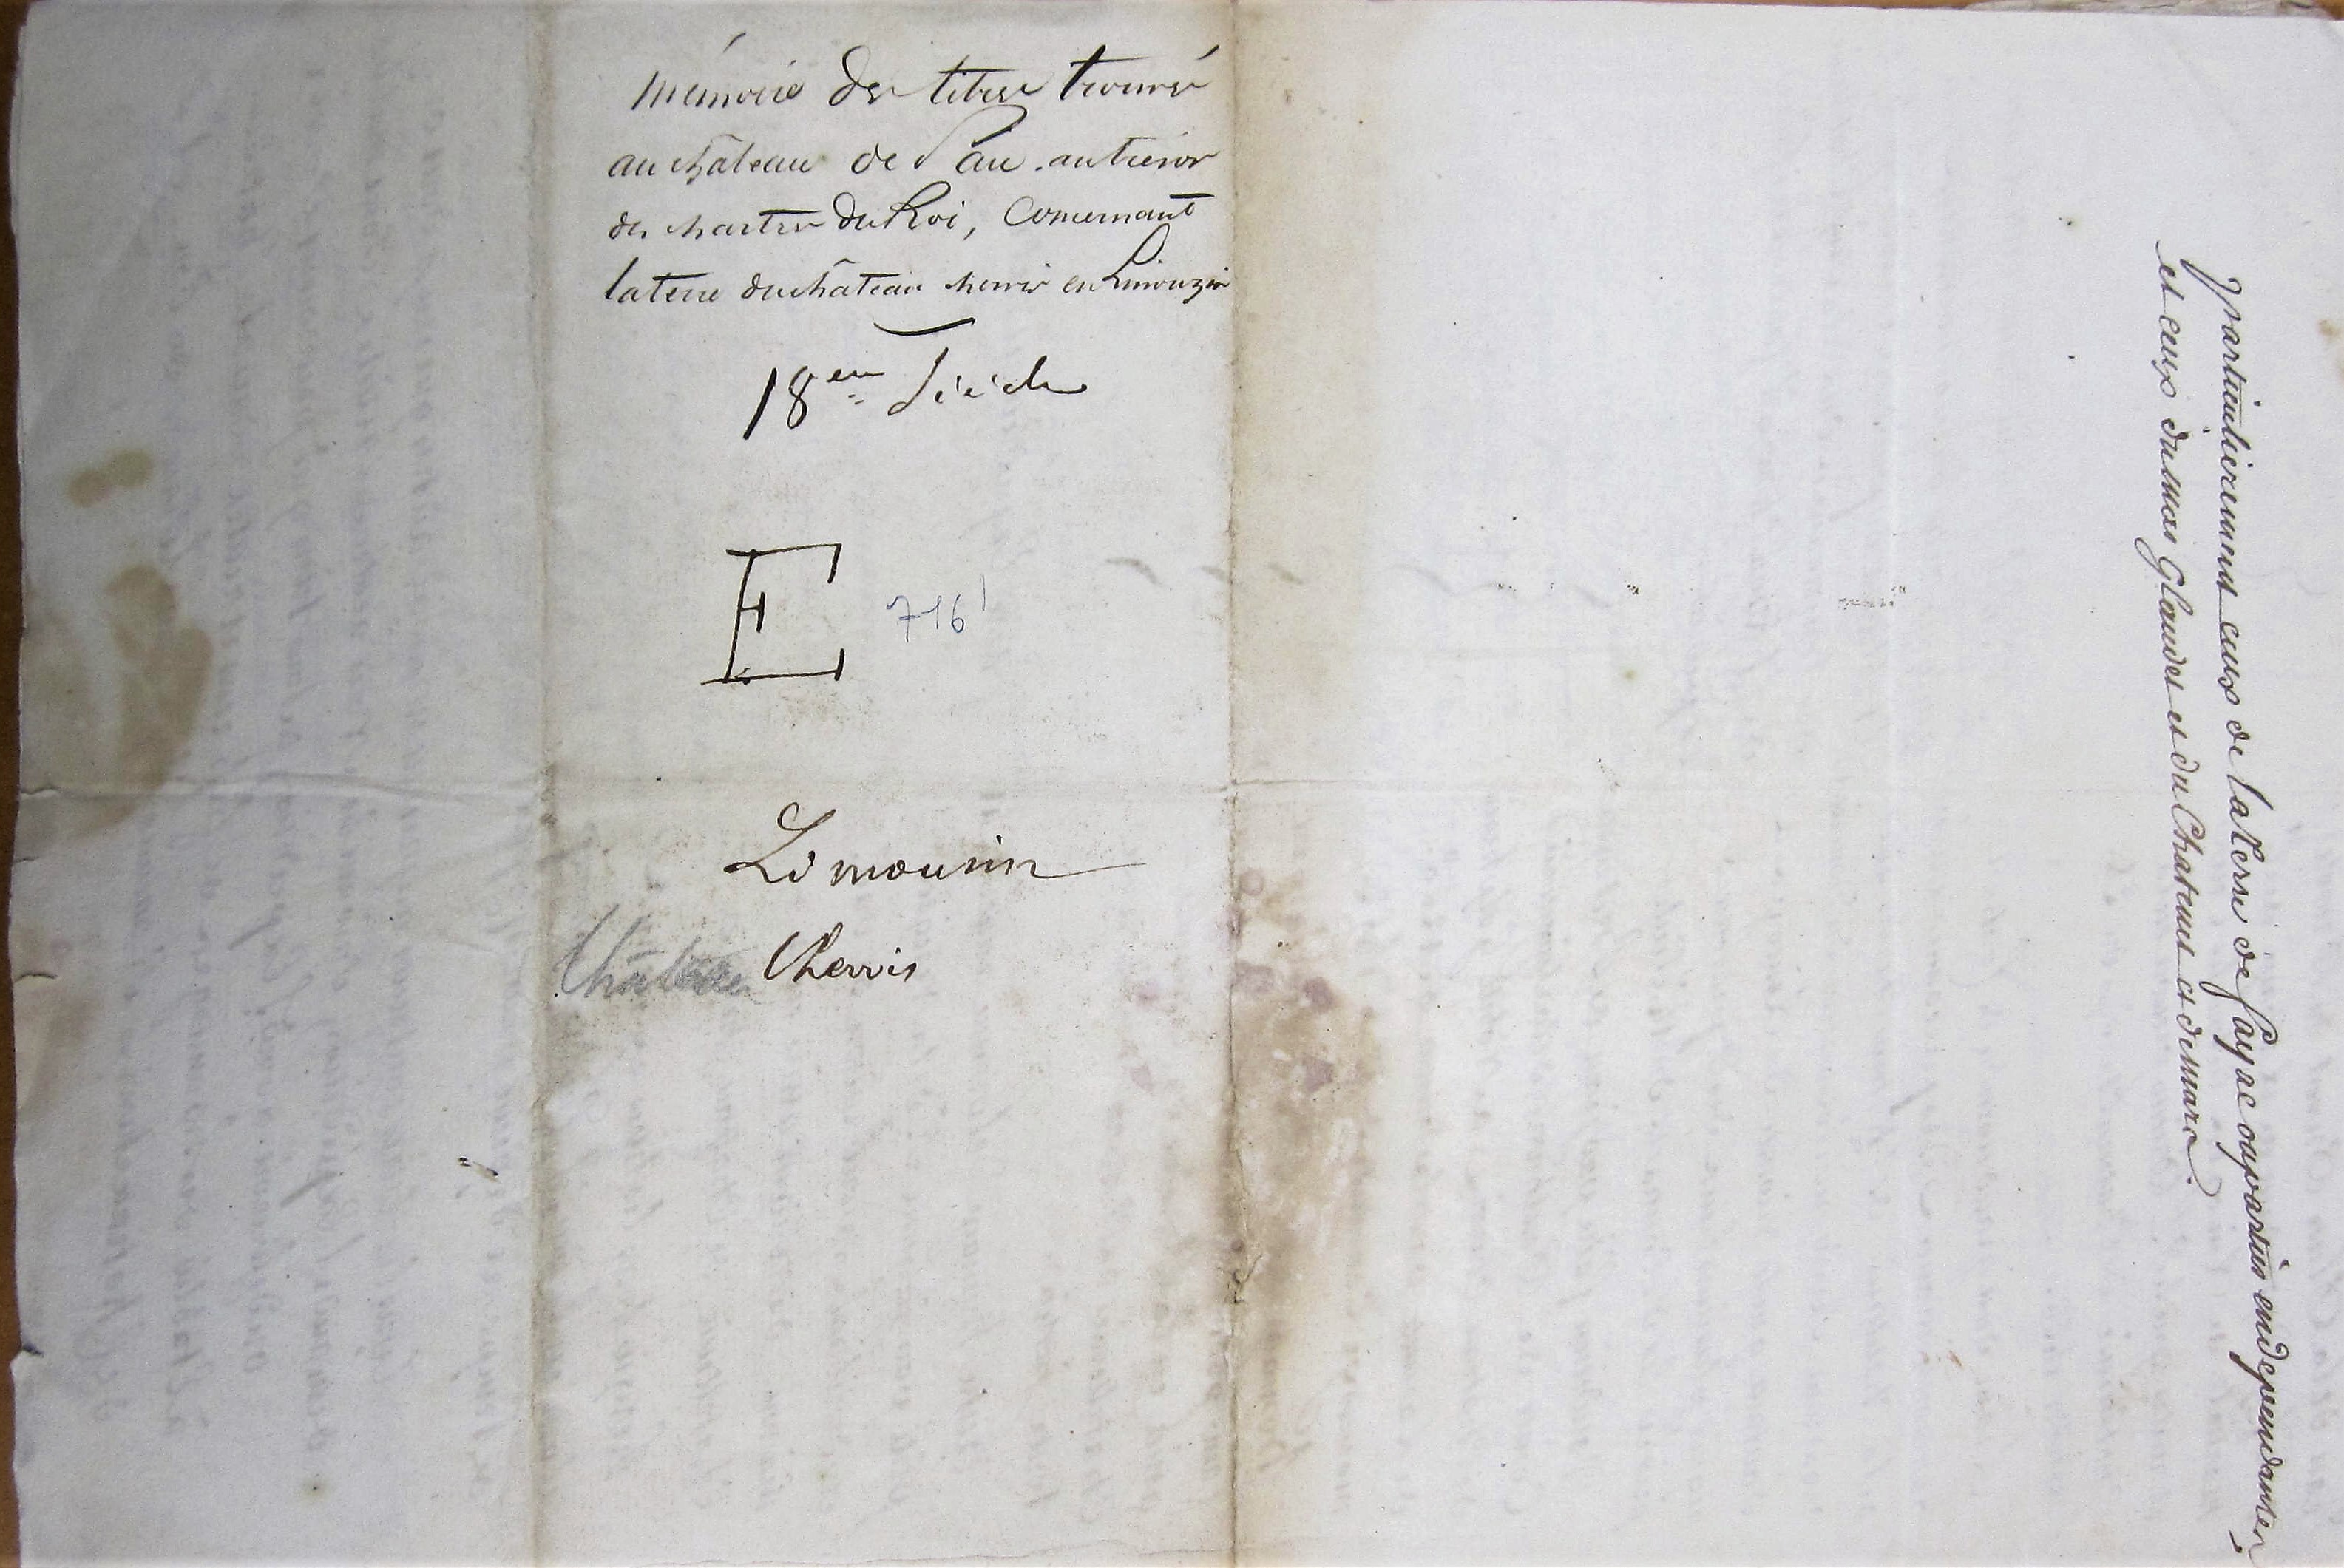 Mémoire des titres trouvés
au château de Pau au trésor
des chartres du Roi, Concernant
la terre du château chervix en Limouzin
18eme Siècle
E 716
Limousin
Château Chervix
particulierement ceux de la terre de payzac apartés endependantes,
et ceux du mas Glaudet et du Chatenet et demarc.